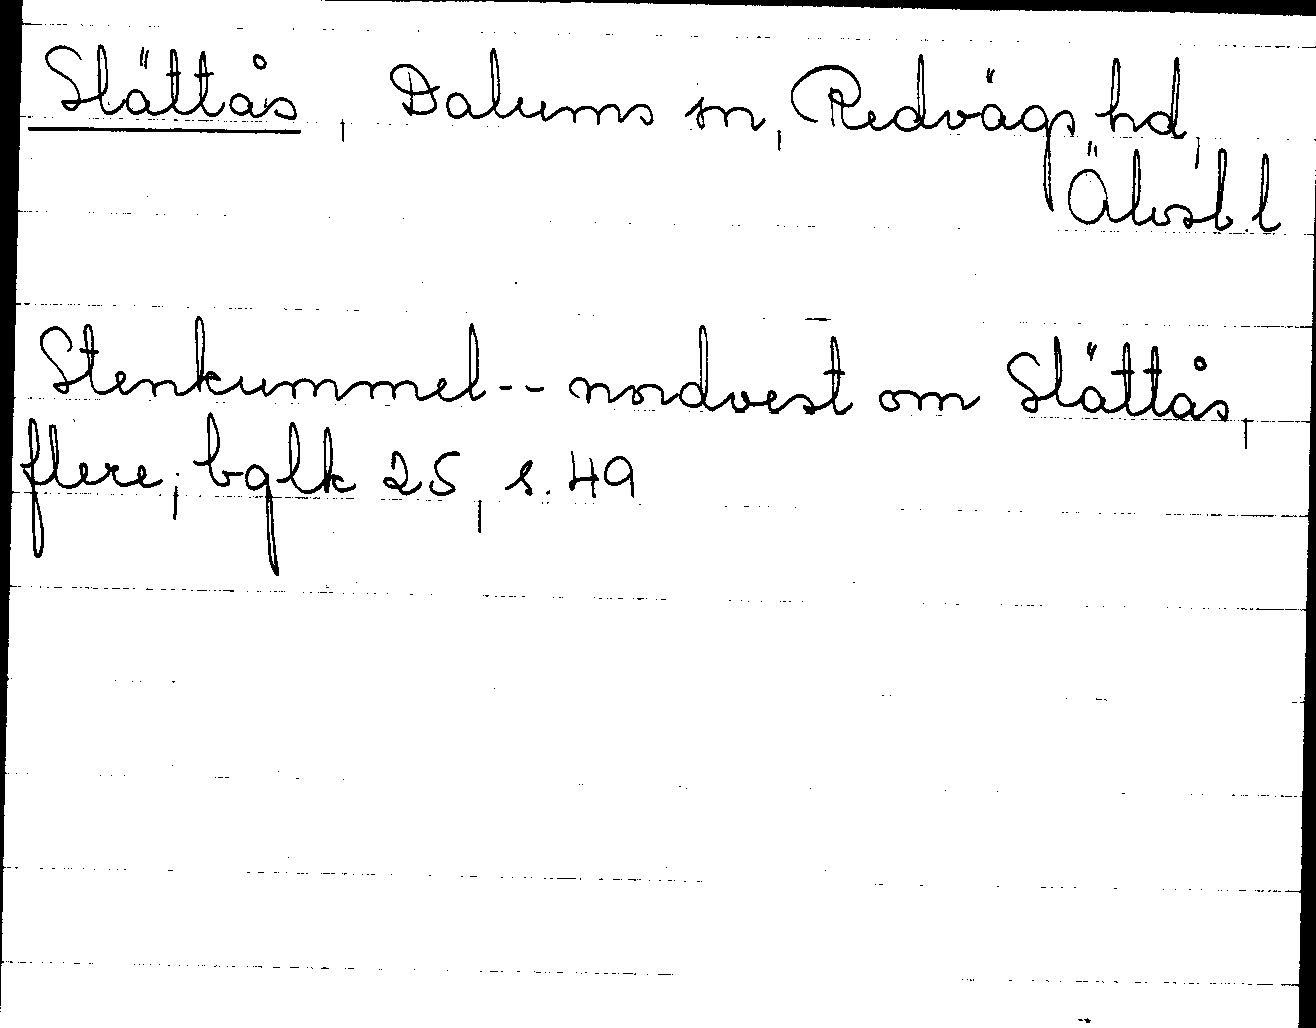 Slättås, Dalums sn, Redvägs hd,
Älvsb. l
Stenkummel -- nordvest om Slättås,
flere; bglk 25, s. 49